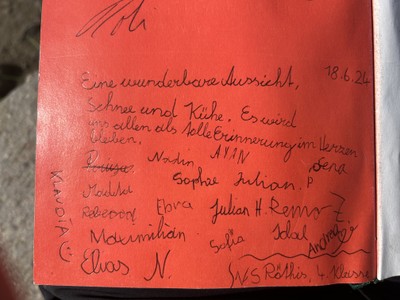 18.6.24
Eine wunderbare Aussicht,
Schnee und Kühe. Es wird
uns allen als tolle Erinnerung im Herzen
bleiben.
Nadin AYAN Lena
Sophie Julian. P
KLAUDIA
Ebra Julian H. Remo
Maximilian Sofia
Elias N.
VS Röthis, 4. Klasse